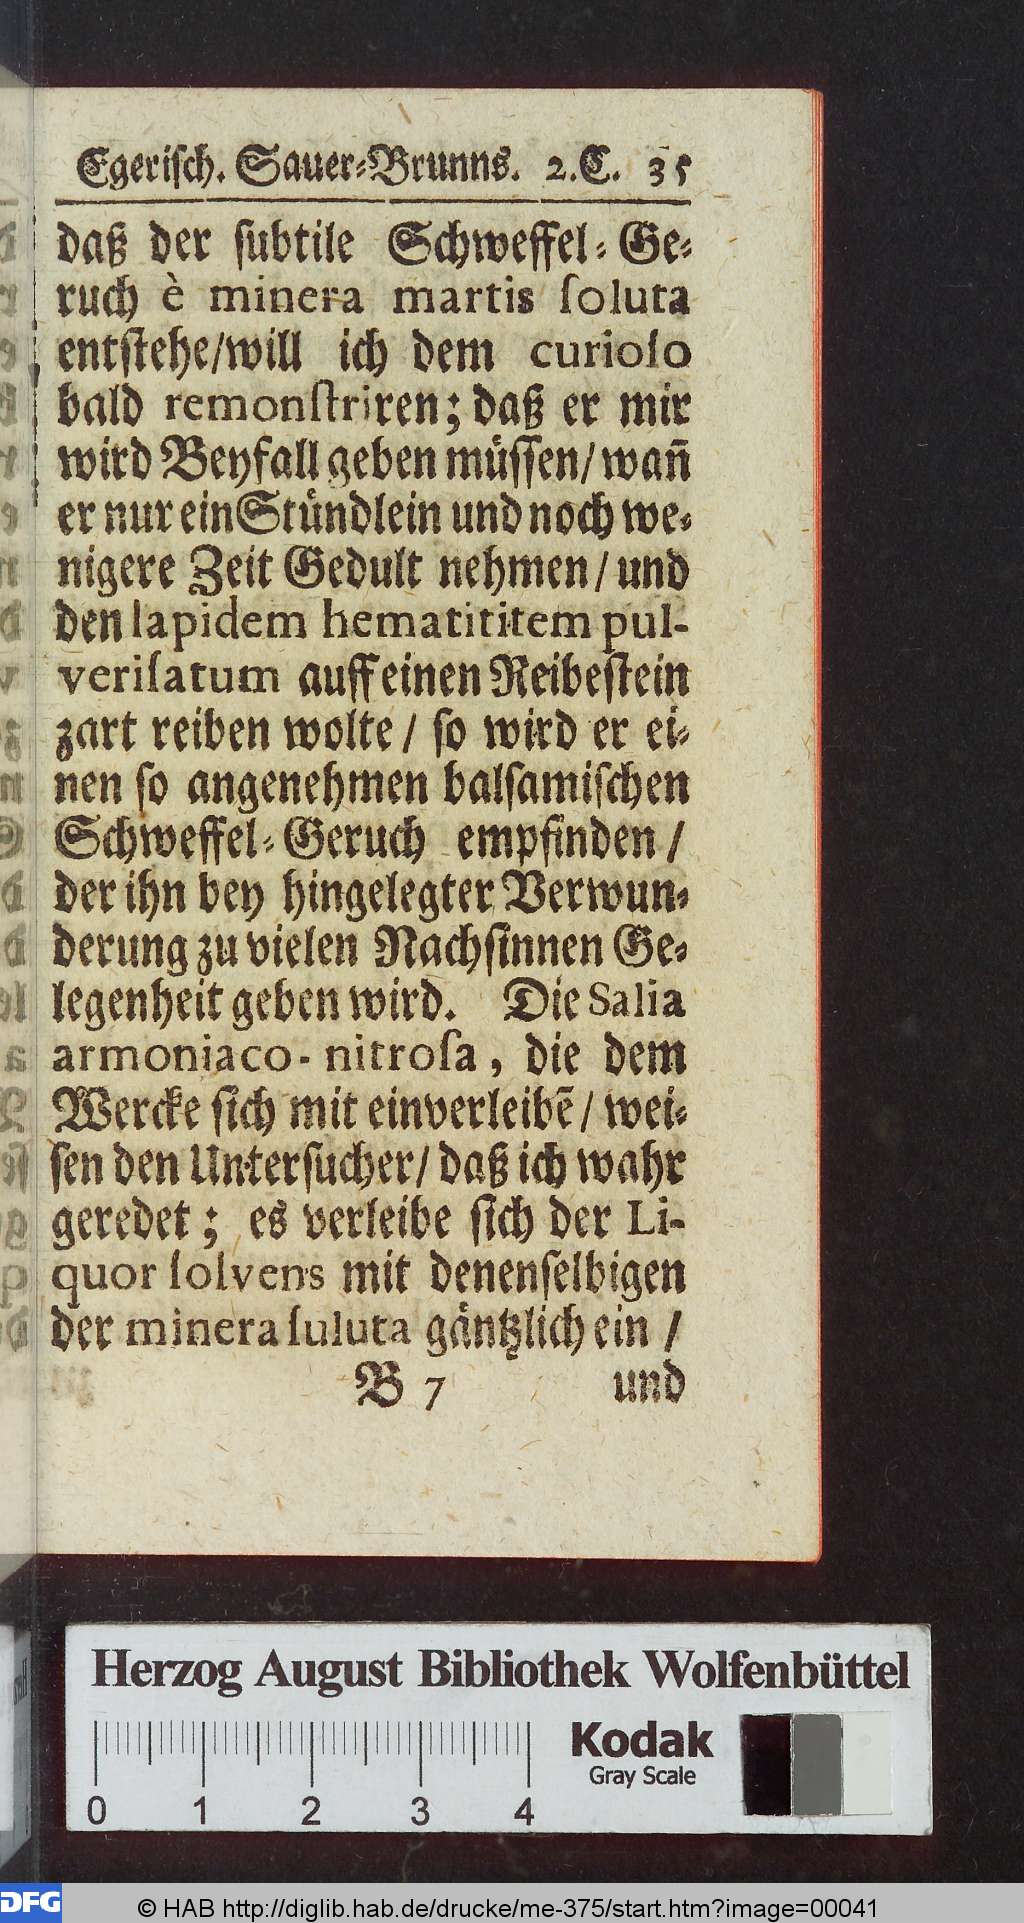 Egeriſch. Sauer-Brunns. 2.C. 35
daß der ſubtile Schweffel-Ge-
ruch è minera martis ſoluta
entſtehe/will ich dem curioſo
bald remonſtriren; daß er mir
wird Beyfall geben müſſen/ wañ
er nur ein Stündlein und noch we-
nigere Zeit Gedult nehmen / und
den lapidem hematititem pul-
veriſatum auff einen Reibeſtein
zart reiben wolte / ſo wird er ei-
nen ſo angenehmen balſamiſchen
Schweffel-Geruch empfinden /
der ihn bey hingelegter Verwun-
derung zu vielen Nachſinnen Ge-
legenheit geben wird. Die Salia
armoniaco-nitroſa, die dem
Wercke ſich mit einverleibẽ / wei-
ſen den Unterſucher/ daß ich wahr
geredet; es verleibe ſich der Li-
quor ſolvens mit denenſelbigen
der minera ſuluta gäntzlich ein /
B 7 und
Herzog August Bibliothek Wolfenbüttel
Kodak
Gray Scale
0 1 2 3 4
DFG
© HAB http://diglib.hab.de/drucke/me-375/start.htm?image=00041